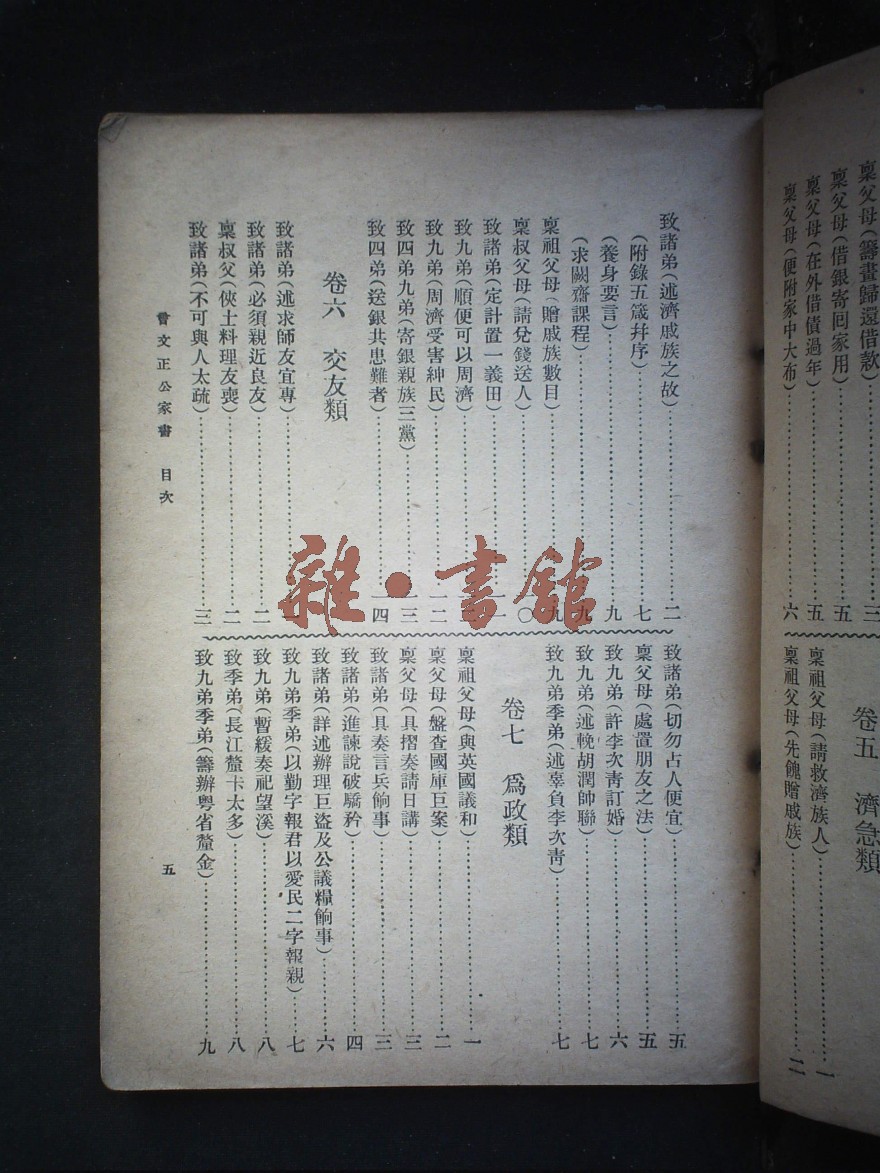 稟父母(籌畫歸還借款)……三
稟父母(借銀寄回家用)……五
稟父母(在外借債過年)……五
稟父母(便附家中大布)……六
卷五 濟急類
稟祖父母(請救濟族人)……一
稟祖父母(先餽贈戚族)……二
致諸弟(述濟戚族之故)……二
(附錄五箴幷序)……七
(養身要言)……九
(求闕齋課程)……九
稟祖父母(贈戚族數目)……九
稟叔父母(請兌錢送人)……一〇
致諸弟(定計置一義田)……一一
致九弟(順便可以周濟)……
致九弟(周濟受害紳民)……一二
致四弟九弟(寄銀親族三黨)……一三
致四弟(送銀共患難者)……一四
卷六 交友類
致諸弟(述求師友宜專)……一
致諸弟(必須親近良友)……二
稟叔父(俠士料理友喪)……二
致諸弟(不可與人太疏)……三
致諸弟(切勿占人便宜)……五
稟父母(處置朋友之法)……五
致九弟(許李次靑訂婚)……六
致九弟(述輓胡潤帥聯)……七
致九弟季弟(述辜負李次靑)……七
卷七 爲政類
稟祖父母(與英國議和)……一
稟父母(盤查國庫巨案)……二
稟父母(具摺奏請日講)……三
致諸弟(具奏言兵餉事)……三
致諸弟(進諫說破驕矜)……四
致諸弟(詳述辦理巨盜及公議糧餉事)……六
致九弟季弟(以勤字報君以愛民二字報親)……七
致九弟(暫緩奏祀望溪)……八
致季弟(長江釐卡太多)……八
致九弟季弟(籌辦粤省釐金)……九
曾文正公家書 目次 五
雜·書館